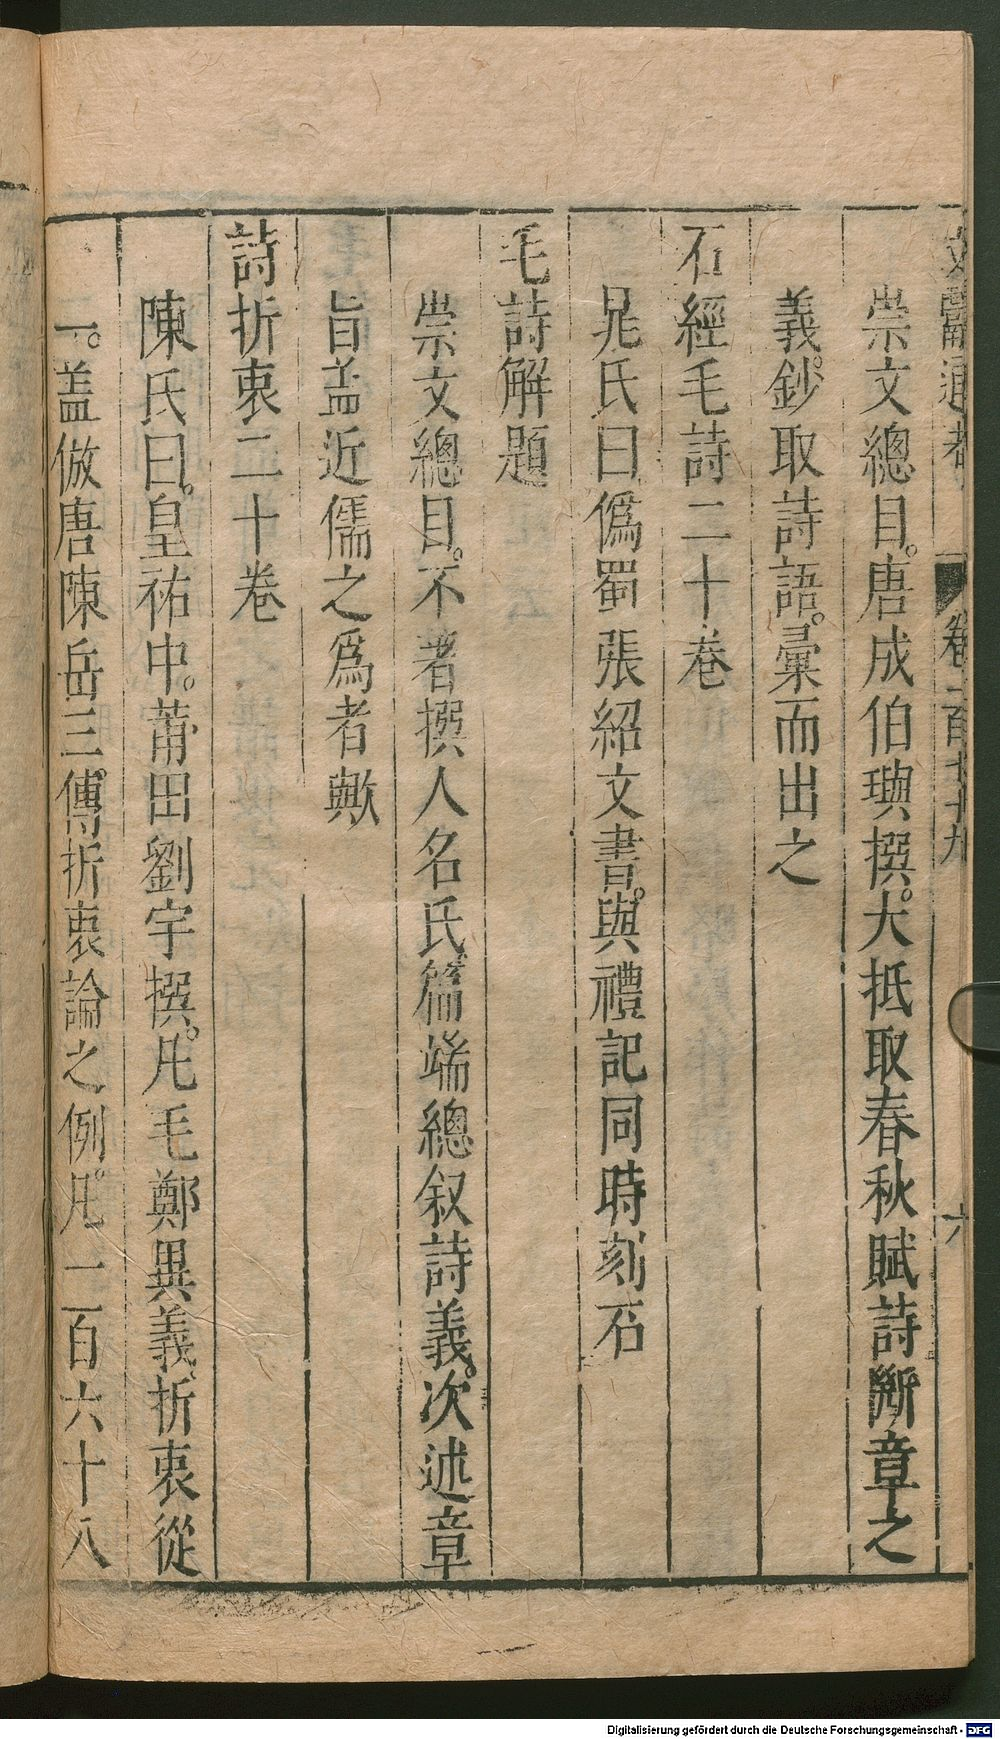 文獻通考 卷一百七十九 六
崇文總目。唐成伯璵撰。大抵取春秋賦詩斷章之
義。鈔取詩語。彙而出之
石經毛詩二十卷
晁氏曰偽蜀張紹文書。與禮記同時刻石
毛詩解題
崇文總目。不著撰人名氏篇端總叙詩義。次述章
旨盖近儒之爲者歟
詩折衷二十卷
陳氏曰。皇祐中。莆田劉宇撰。凡毛鄭異義、折衷從
一。盖倣唐陳岳三傳折衷論之例。凡一百六十八
Digitalisierung gefördert durch die Deutsche Forschungsgemeinschaft - DFG